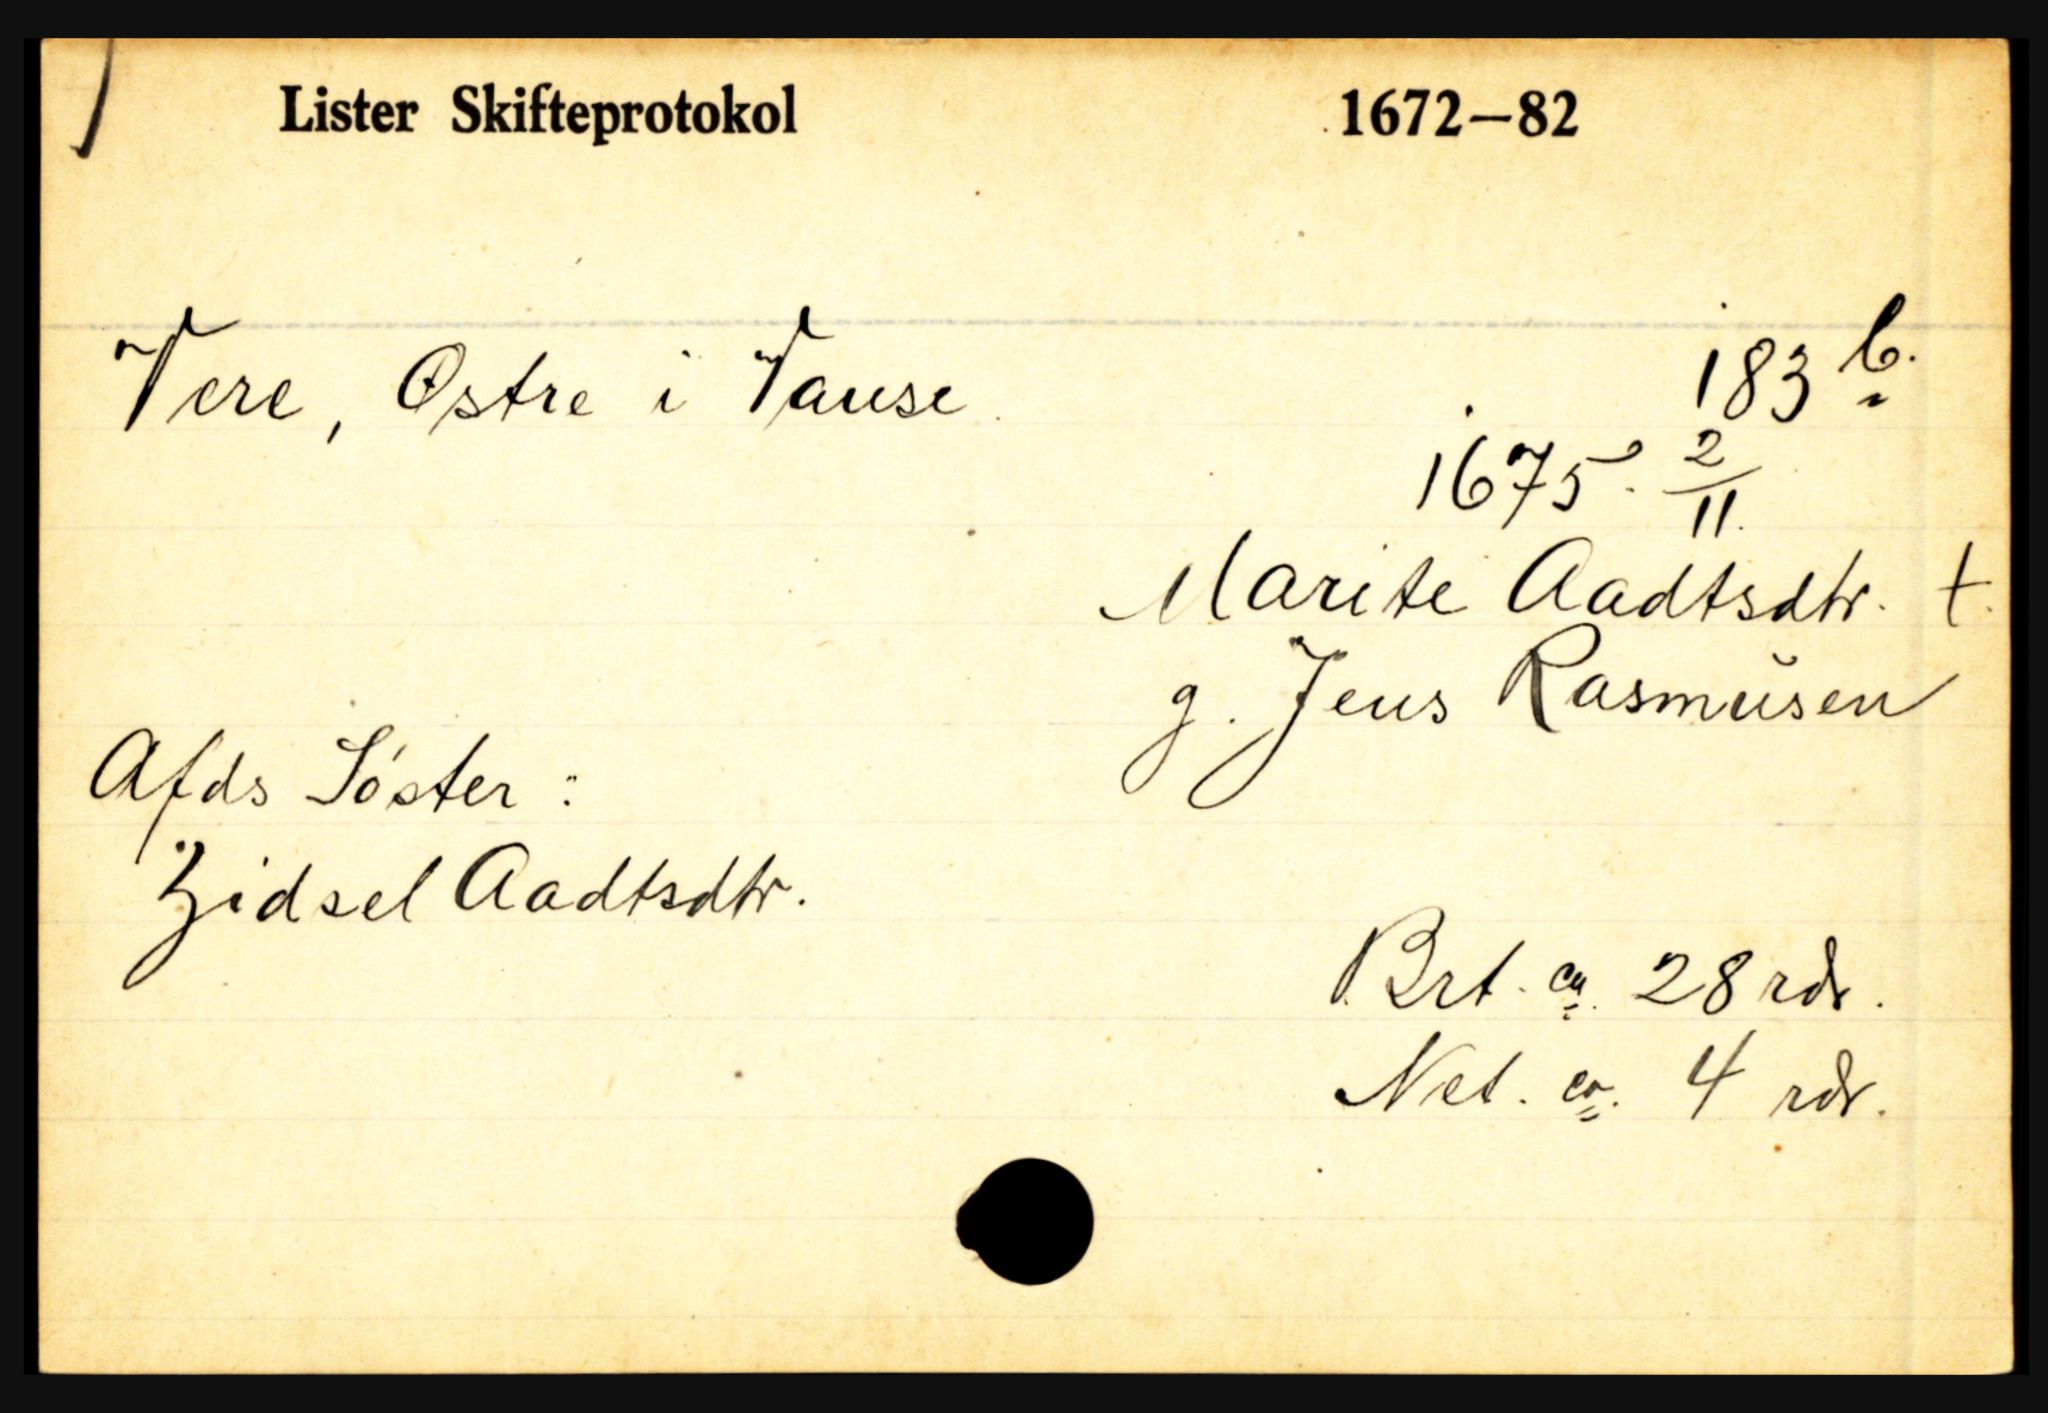 Lister Skifteprotokol 1672—82
Vere, Østre i Vanse 183 b.
1675. 2/11.
Marite Aadtsdtr. †.
g. Jens Rasmusen
Afds Söster:
Zidsel Aadtsdtr.
Brt. ca. 28 rdr.
Net. ca. 4 rdr.